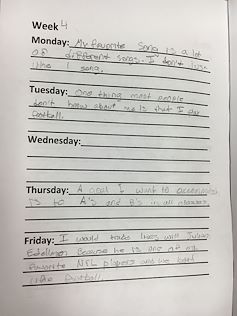 Week 4
Monday: My favorite song is a lot
of different songs. I don't
like 1 song.
Tuesday: One thing most people
don't know about me is that I play
football.
Wednesday:
Thursday: A goal I want to accomplish
is to A's and B's in all classes.
Friday: I would trade lives with Julian
Edelman because he is one of my
favorite NFL players and we both
like football.